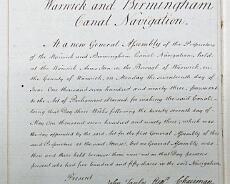 Warwick and Birmingham
Canal Navigation.
At a new General Assembly of the Proprietors
of the Warwick and Birmingham Canal Navigation, held
at the Warwick Arms Inn in the Borough of Warwick, in
the County of Warwick, on Monday the seventeenth day of
June One thousand seven hundred and ninety three, pursuant
to the Act of Parliament obtained for making the said Canal
being that Day three Weeks following the twenty seventh day of
May One thousand seven hundred and ninety three, which was
the day appointed by the said Act for the first General Assembly of the
said Proprietors at the said House, but no General Assembly was
then and there held because there were not on that Day present
persons who had five hundred and fifty shares in the said Navigation.
Present
John Esqr. Chairman